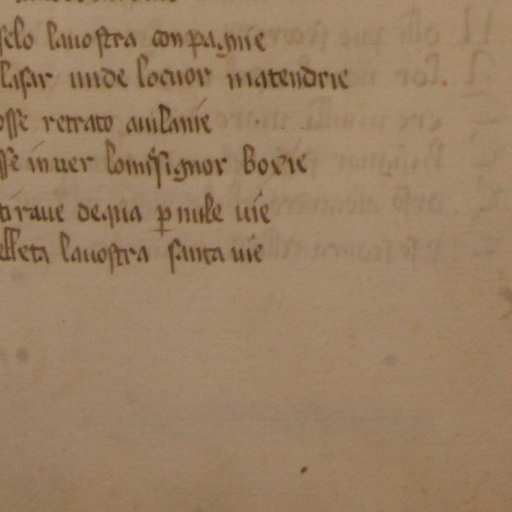 selo lauostra conpagnie
lasar unde locuor matendrie
osse retrato auilanie
sse inuer lomesignor boxie
tiraue de qua p mile uie
elleta lauostra santa uie